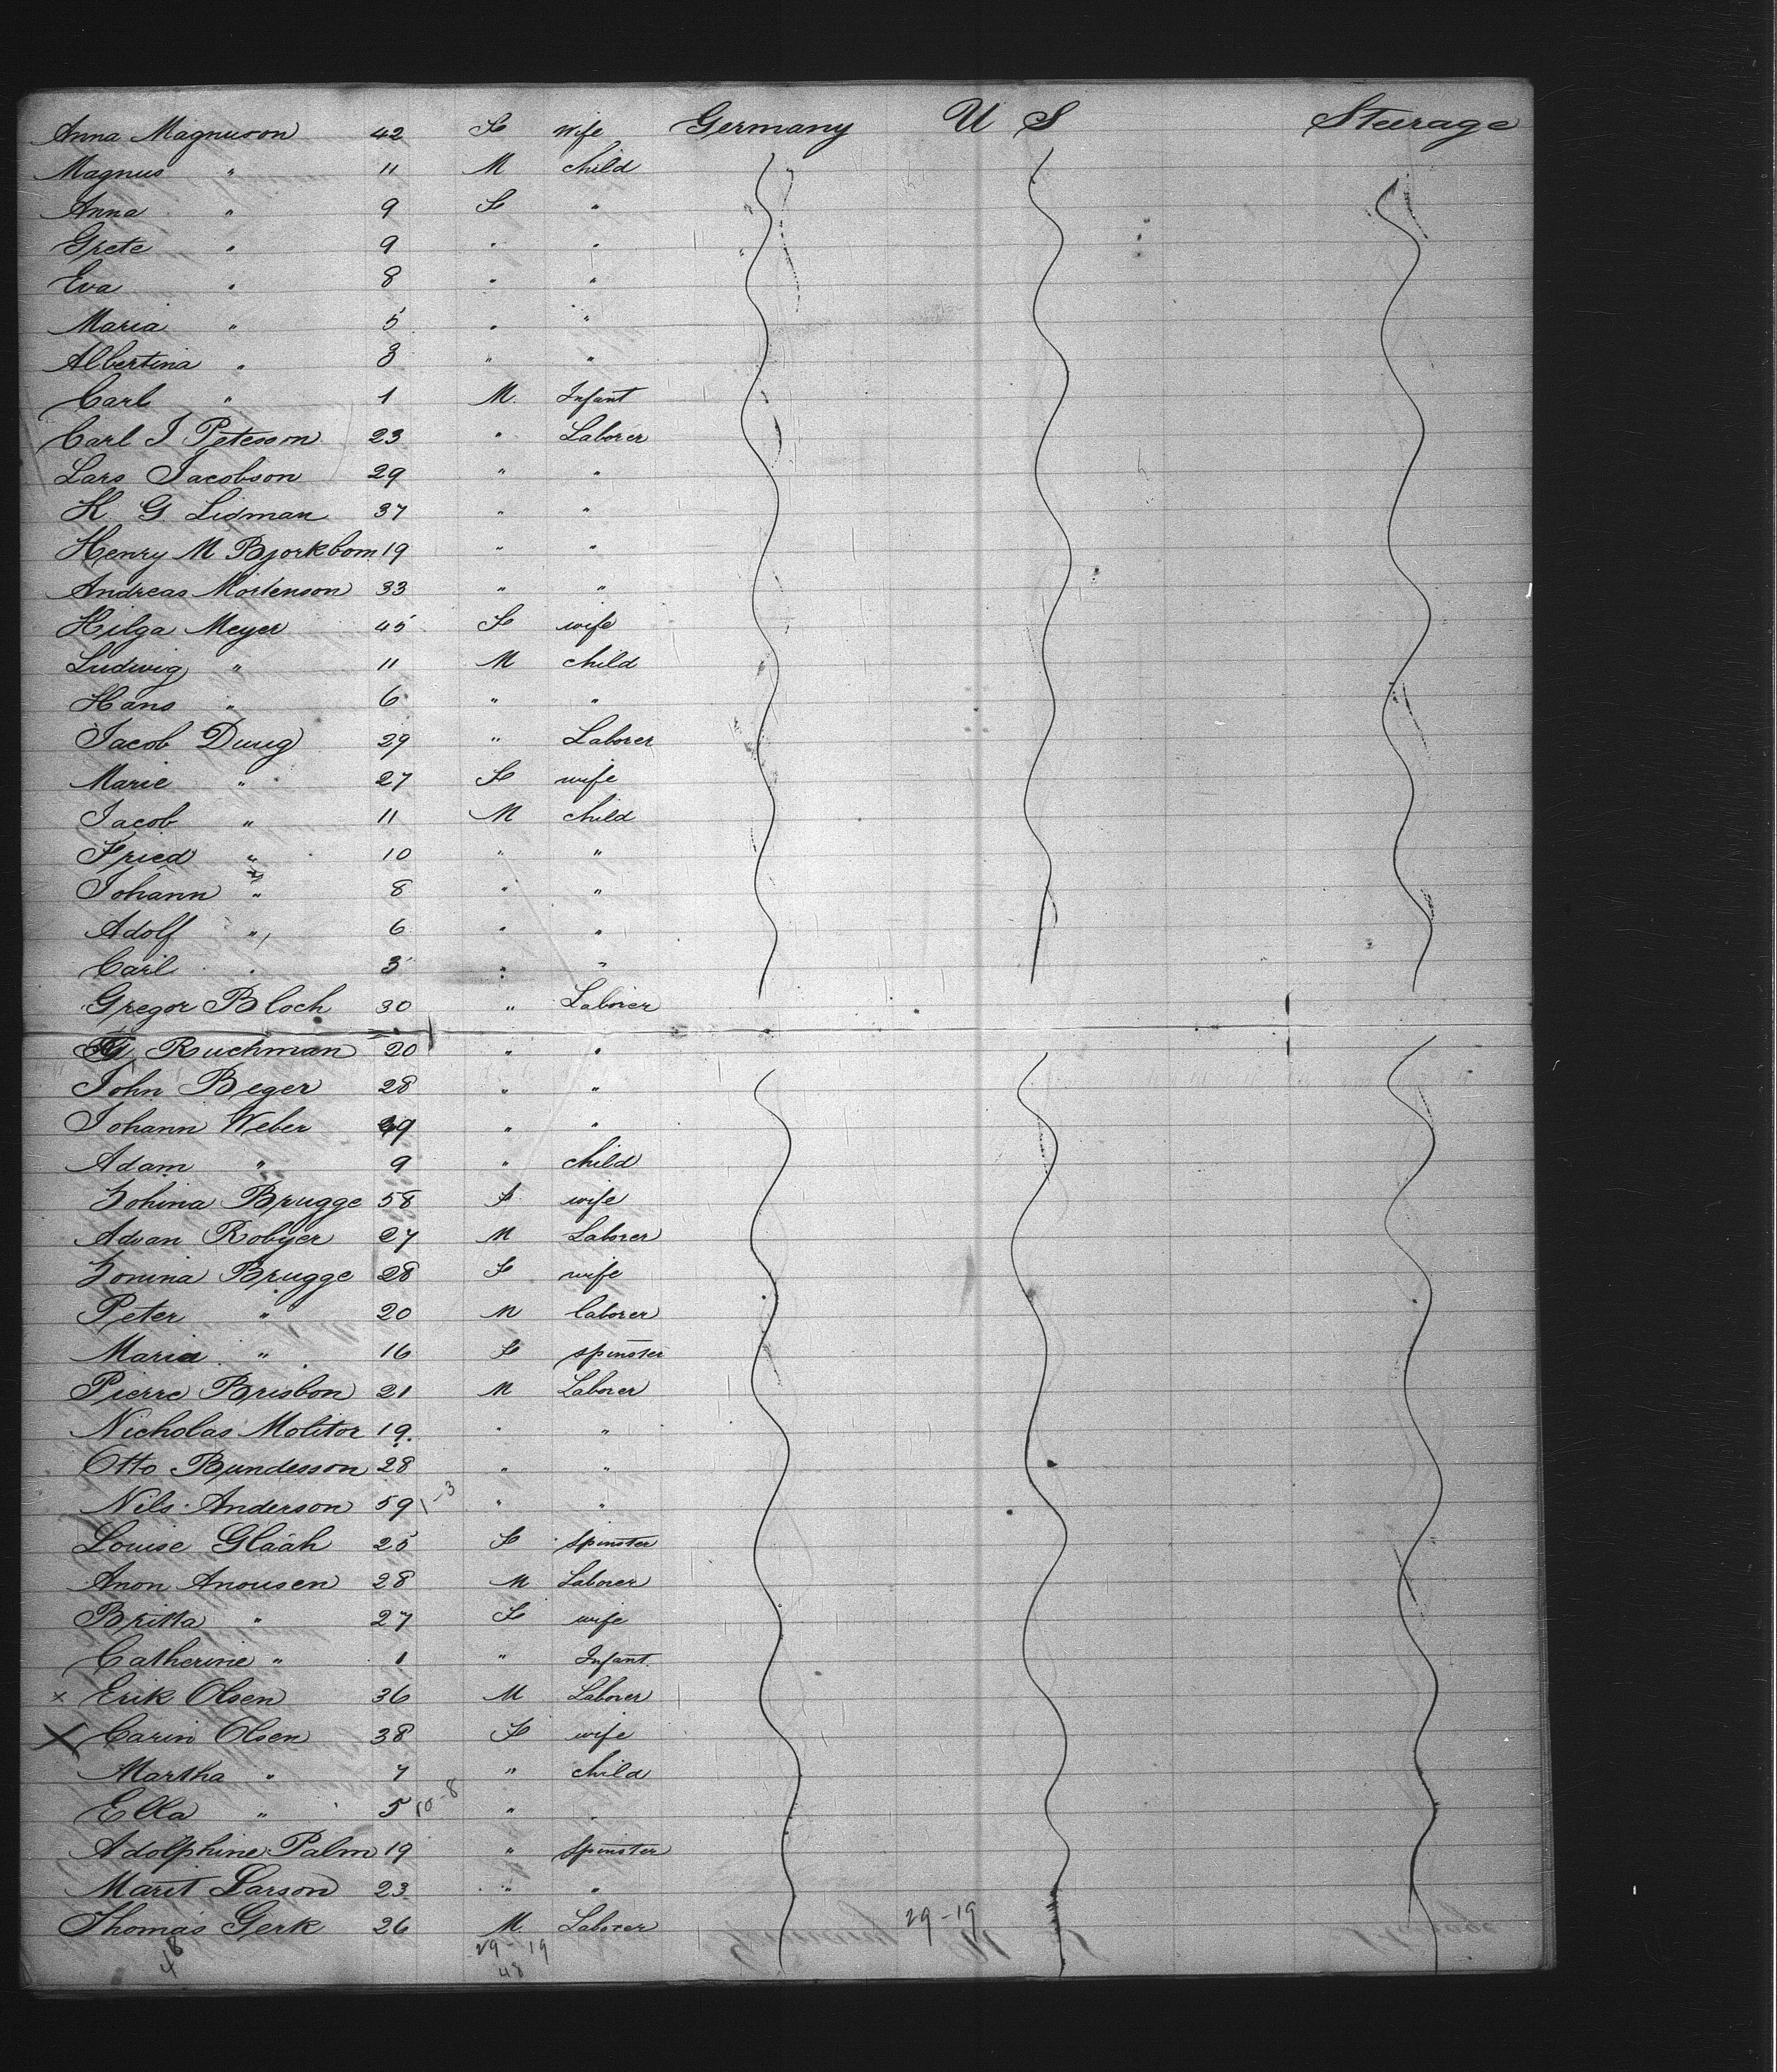 Anna Magnuson 42 F wife Germany U S Steerage
Magnus " 11 M child
Anna " 9 F "
Grete " 9 " "
Eva " 8 " "
Maria " 5 " "
Albertina " 3 " "
Carl " 1 M. Infant
Carl J Petesson 23 " Laborer
Lars Jacobson 29 " "
K. G. Lidman 37 " "
Henry M Bjorkbom 19 " "
Andreas Mortenson 33 " "
Hilga Meyer 45 F wife
Ludwig " 11 M child
Hans " 6 " "
Jacob 29 " Laborer
Marie " 27 F wife
Jacob " 11 M child
Fried " 10 " "
Johann " 8 " "
Adolf " 6 " "
Carl " 3 " "
Gregor Bloch 30 " Laborer
Ruchman 20 " "
John Beger 28 " "
Johann Weber 39 " "
Adam " 9 " child
Brugge 58 F wife
Adian Robyer 27 M Laborer
Brugge 28 F wife
Peter " 20 M laborer
Maria " 16 F spinster
Pierre Brisbon 21 M Laborer
Nicholas Molitor 19. " "
Otto Bundesson 28 " "
Nils Anderson 59 1-3 " "
Louise Glaah 25 F spinster
Anon Anousen 28 M Laborer
Britta " 27 F wife
Catherine " 1 " Infant
x Erik Olsen 36 M Laborer
X Carin Olsen 38 F wife
Martha " 7 " child
Ella " 5 10-8 " "
Adolphine Palm 19 " spinster
Marit Larson 23 " "
Thomas Gerk 26 M. Laborer 29-19
48 29-19
48